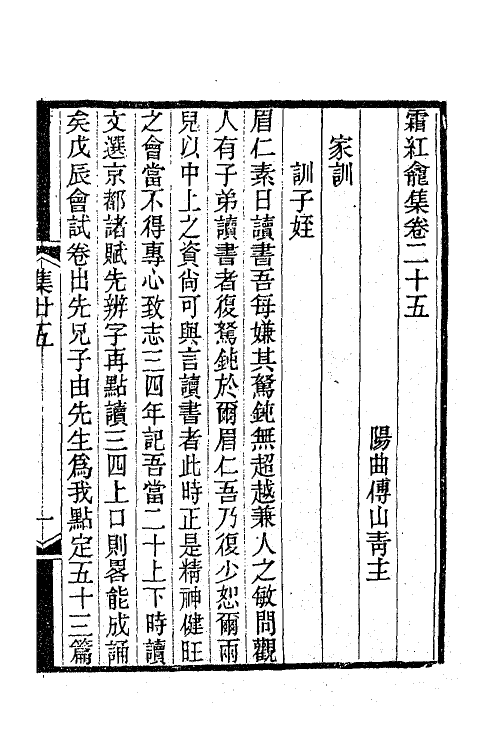 霜紅龕集卷二十五
陽曲傅山青主
家訓
訓子姪
眉仁素日讀書吾每嫌其駑鈍無超越兼人之敏間觀
人有子弟讀書者復駑鈍於爾眉仁吾乃復少恕爾兩
兒以中上之資尙可與言讀書者此時正是精神健旺
之會當不得專心致志三四年記吾當二十上下時讀
文選京都諸賦先辨字再點讀三四上口則畧能成誦
矣戊辰會試卷出先兄子由先生爲我點定五十三篇
集廿五
一